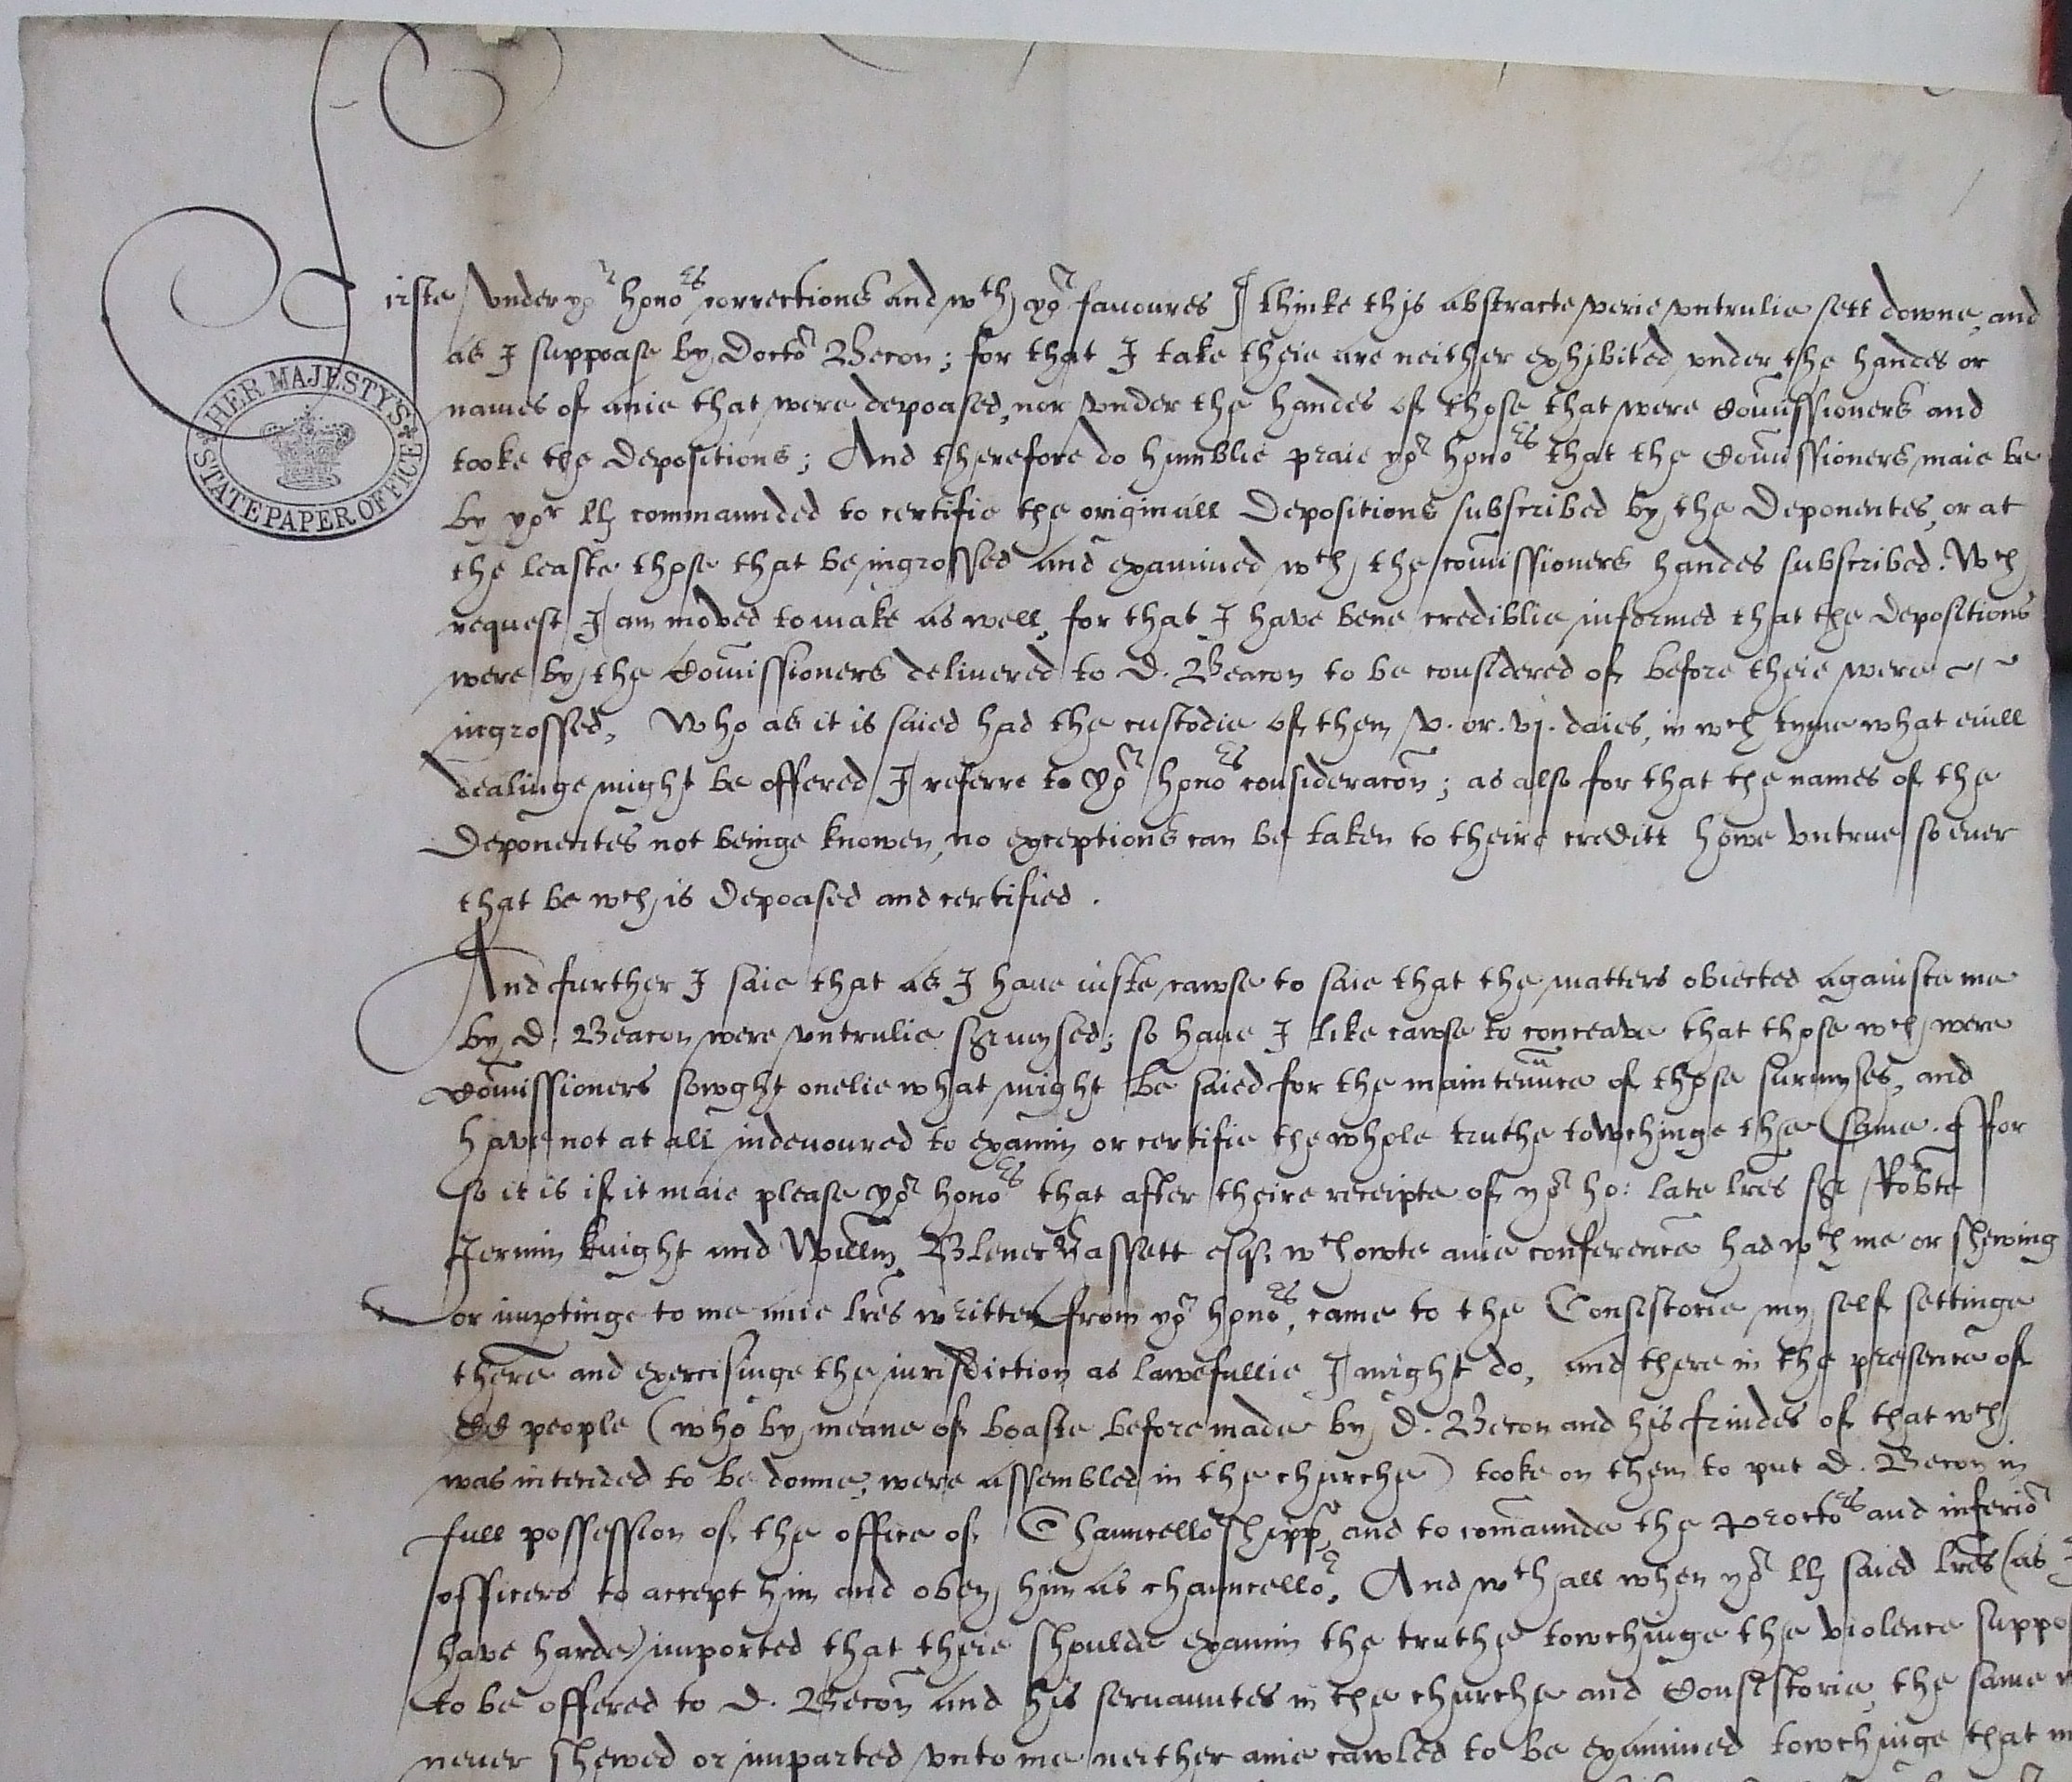 Firste under yor honors corrections and wth yor favoures I thinke this abstracte verie untrulie sett downe, and
as I suppoase by Doctor Becon; for that I take theie are neither exhibited under the handes or
names of anie that were depoased, nor under the handes of those that were Comissioners and
tooke the Depositions; And therefore do humblie praie yor honors that the Comissioners maie be
by yor ll commaunded to certifie the originall Depositions subscribed by the Deponentes, or at
the leaste those that be ingrossed and examined wth the comissioners handes subscribed. Wch
request I am moved to make as well for that I have bene crediblie informed that the depositions
were by the Comissioners delivered to D. Beacon to be considered of before theie were
ingrossed, Who as it is saied had the custodie of them v. or. vj. daies, in wch tyme what evill
dealinge might be offered I referre to yor honors consideracon; as also for that the names of the
Deponentes not beinge knowen, no exceptions can be taken to theire creditt howe untrue so ever
that be wch is Depoased and certified.
And further I saie that as I have iuste cawse to saie that the matters obiected againste me
by D. Beacon were untrulie surmysed; so have I like cawse to conceave that those wch were
Comissioners sowght onelie what might be saied for the maintenance of those surmyses, and
have not at all indevoured to examin or certifie the whole truthe towchinge the same. ffor
so it is if it maie please yor honors that after theire receipte of yor ho: late lres Sr Robte
Jermin knight and Willm Blenerhassett esqr wthowte anie conference had wth me or shewing
or imptinge to me anie lres written from yor honors, came to the Consistorie my self settinge
there and exercisinge the iurisdiction as lawefullie I might do, and there in the presence of
CC people (who by meane of boaste before made by D. Becon and his frindes of that wch
was intended to be donne, were assembled in the churche) tooke on them to put D. Becon in
full possession of the office of Chauncellorshipp, and to comaunde the Proctors and inferior
officers to accept him and obey him as chauncellor. And wthall when yor ll saied lres (as I
have harde) imported that theie shoulde examin the truthe towchinge the violence suppo
to be offered to D. Becon and his servauntes in the churche and Consistorie, the same
never shewed or imparted unto me neither anie cawled to be examined towchinge that
HER MAJESTY'S
STATE PAPER OFFICE